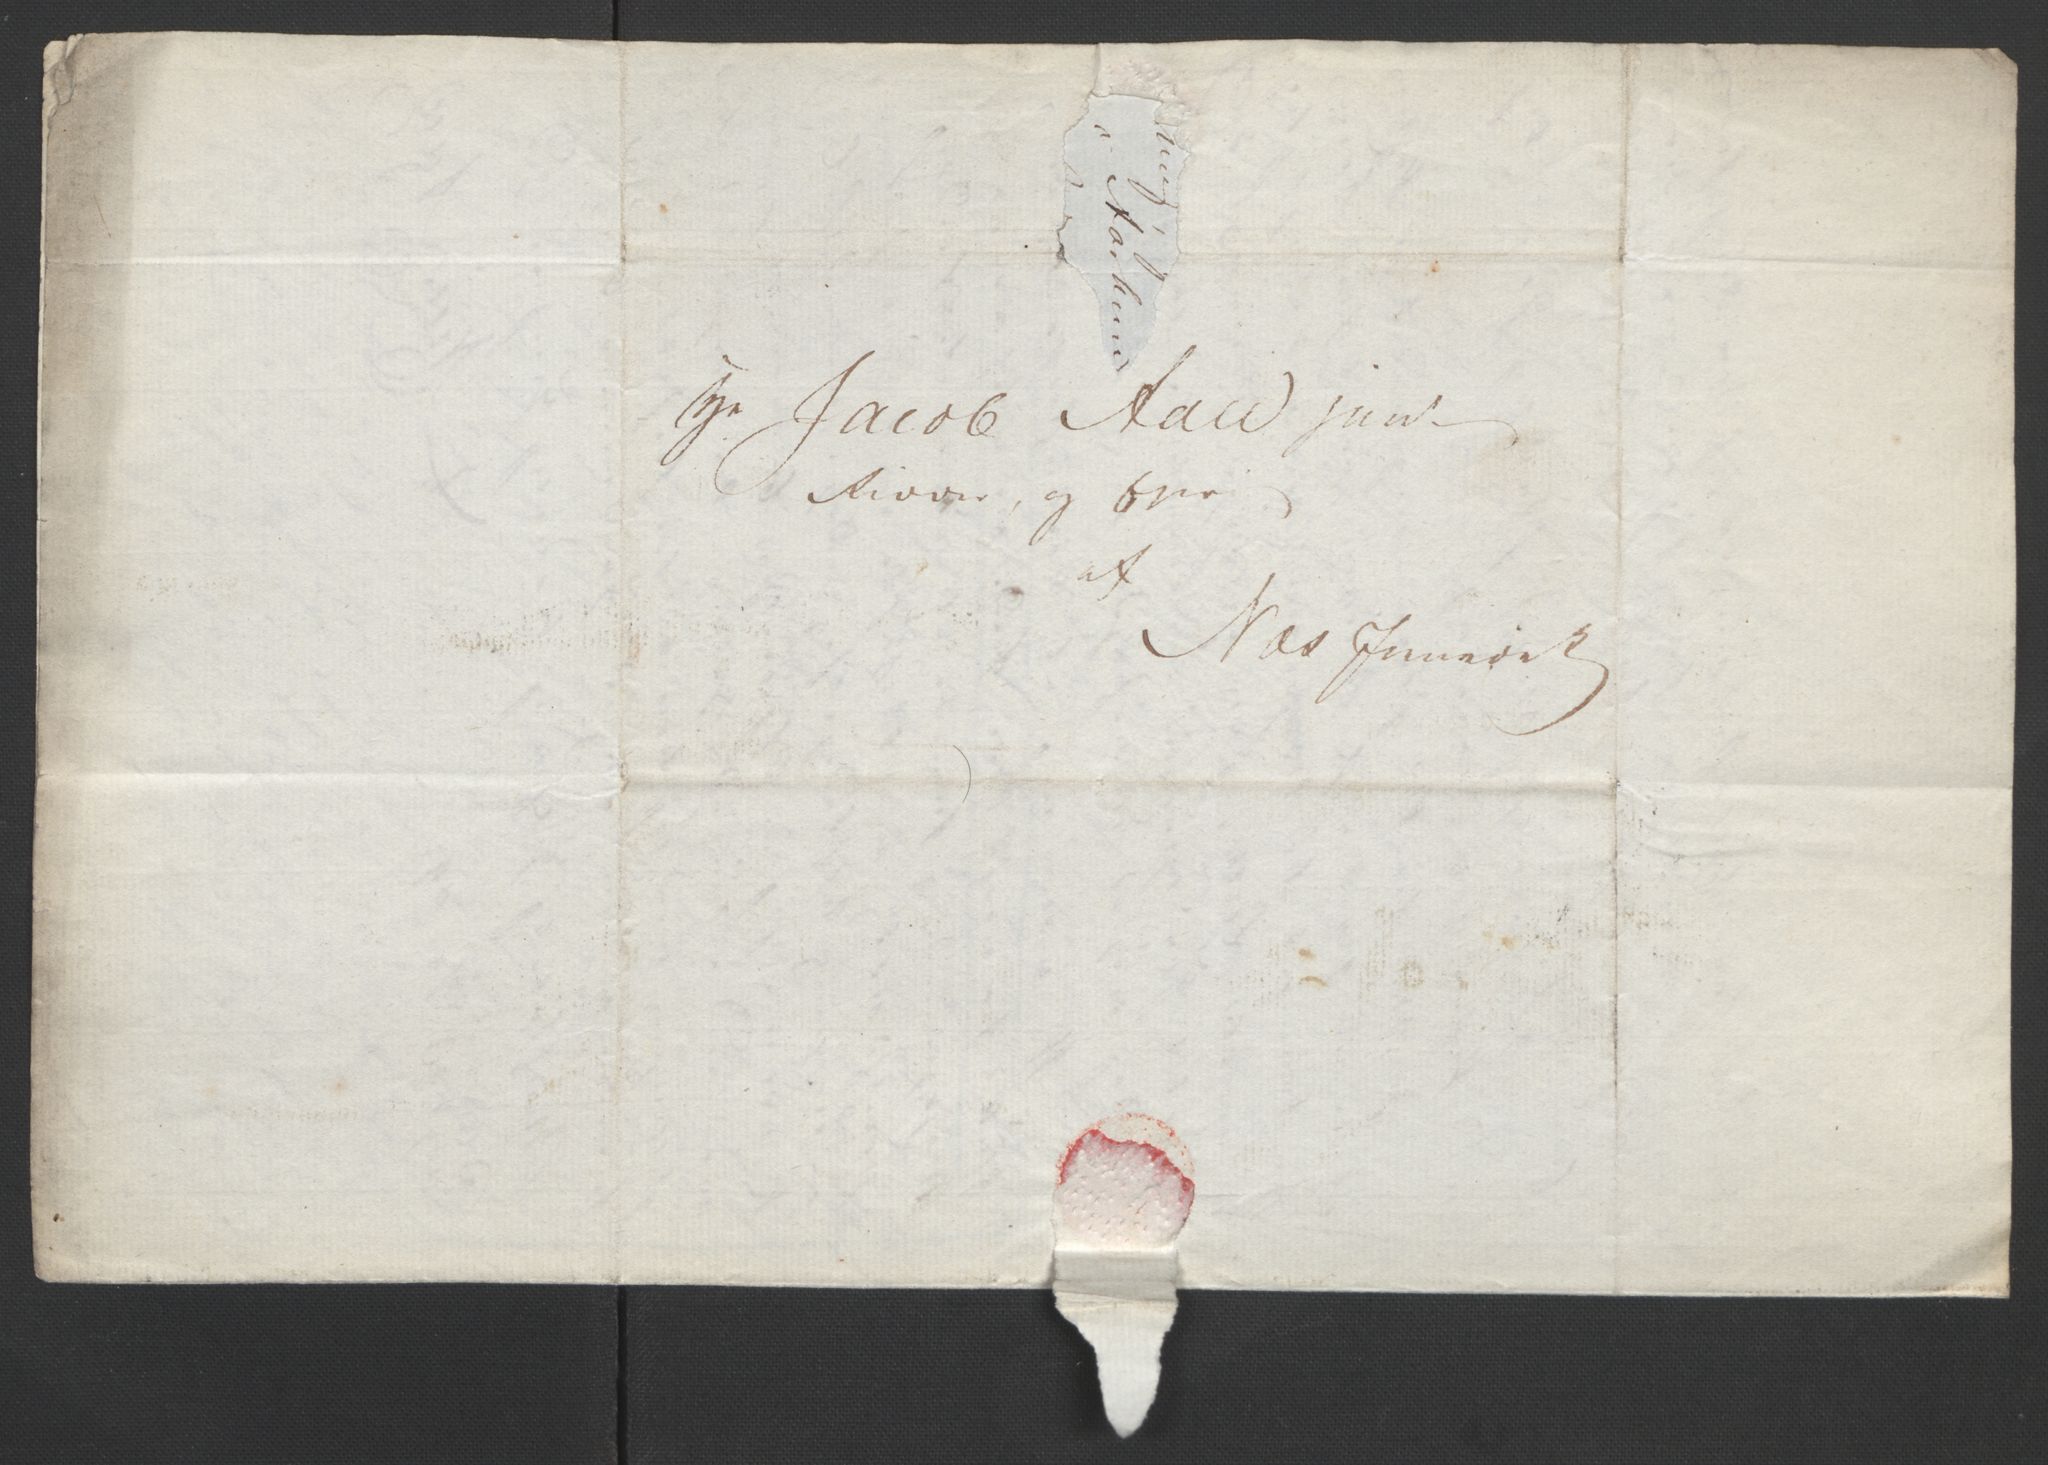 Hr Jacob Aall junr
Ridder, og Eier
af
Næs Jernværk